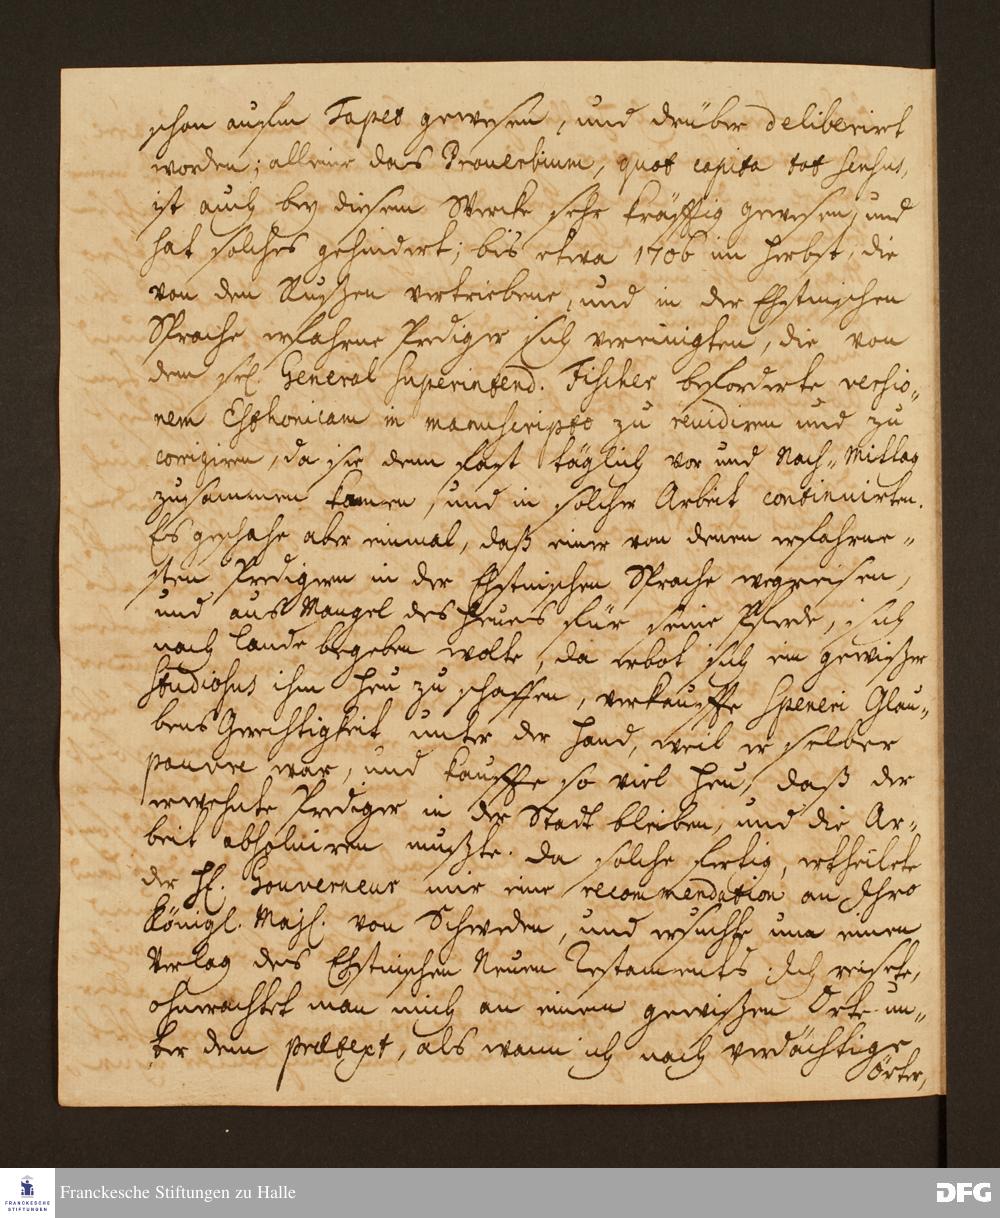 schon aufm Tapet gewesen, und drüber deliberirt
worden; alleine das Proverbium, quot capita tot sensus,
ist auch bey diesem Wercke sehr kräfftig gewesen, und
hat solches gehindert; bis etwa 1706 im Herbst, die
von den Russen vertriebene, und in der Ehstnischen
Sprache erfahrne Prediger sich vereinigten, die von
dem sel. General Superintend. Fischer beforderte versio-
nem Esthonicam in manuscripto zu revidiren und zu
corrigiren, da sie denn fast täglich vor und Nach-Mittag
zusammen kamen, und in solcher Arbeit continuirten.
Es geschahe aber einmal, daß einer von denen erfahrne-
sten Predigern in der Ehstnischen Sprache wegreisen,
und aus Mangel des Heues für seine Pferde, sich
nach Lande begeben wolte, da erbot sich ein gewißer
Studiosus ihm Heu zu schaffen, verkauffte Speneri Glau-
bens Gerechtigkeit unter der Hand, weil er selber
pauvre war, und kauffte so viel Heu, daß der
erwehnte Prediger in der Stadt bleiben, und die Ar-
beit absolviren mußte. Da solche fertig, ertheilete
der H. Gouverneur mir eine recommendation an Ihro
Königl. Majt. von Schweden, und ersuchte um einen
Verlag des Ehstnischen Neuen Testaments. Ich reisete,
ohnerachtet man mich an einem gewißen Orte un-
ter dem prætext, als wann ich nach verdächtige
Örter,
Franckesche Stiftungen zu Halle
FRANCKESCHE
STIFTUNGEN
DFG